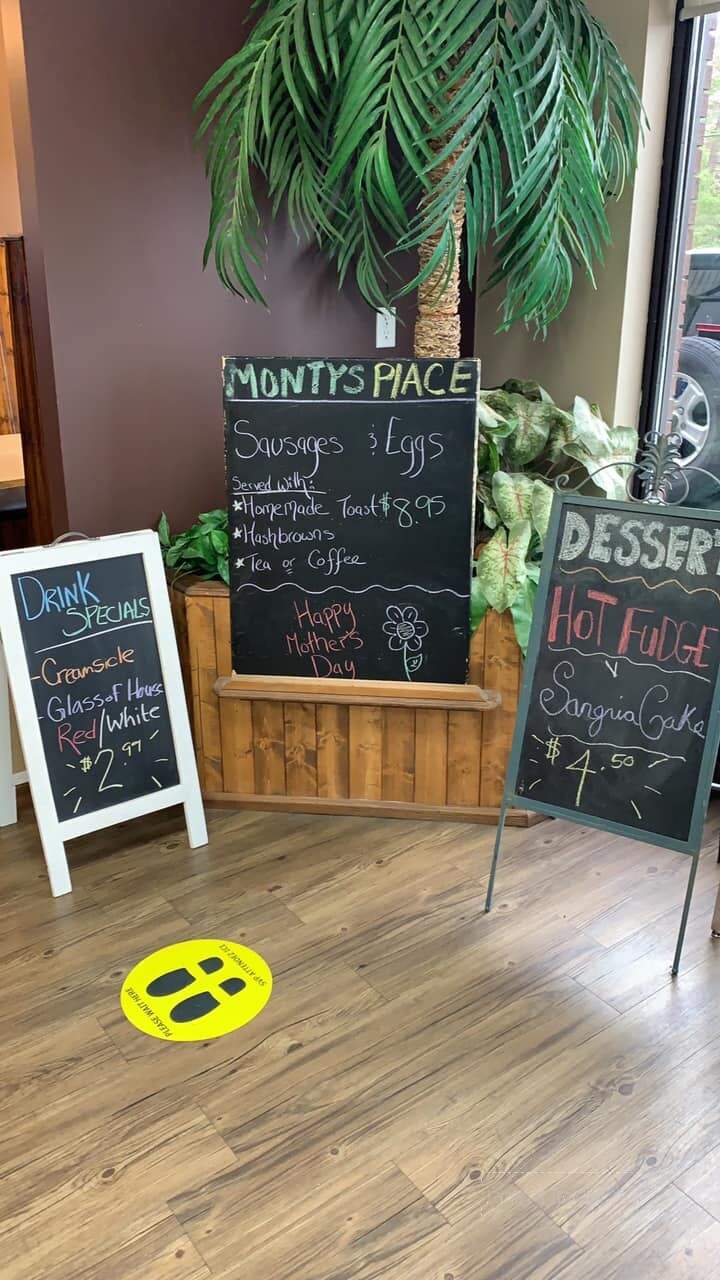 MONTYS PLACE
Sausages & Eggs
Served with:
*Homemade Toast $8.95
*Hashbrowns
*Tea or Coffee
Happy
Mother's
Day
DRINK
SPECIALS
- Creamsicle
- Glass of House
Red/White
$2.97
DESSERT
HOT FUDGE
Sangria Cake
$4.50
SVP ATTENDEZ ICI
PLEASE WAIT HERE